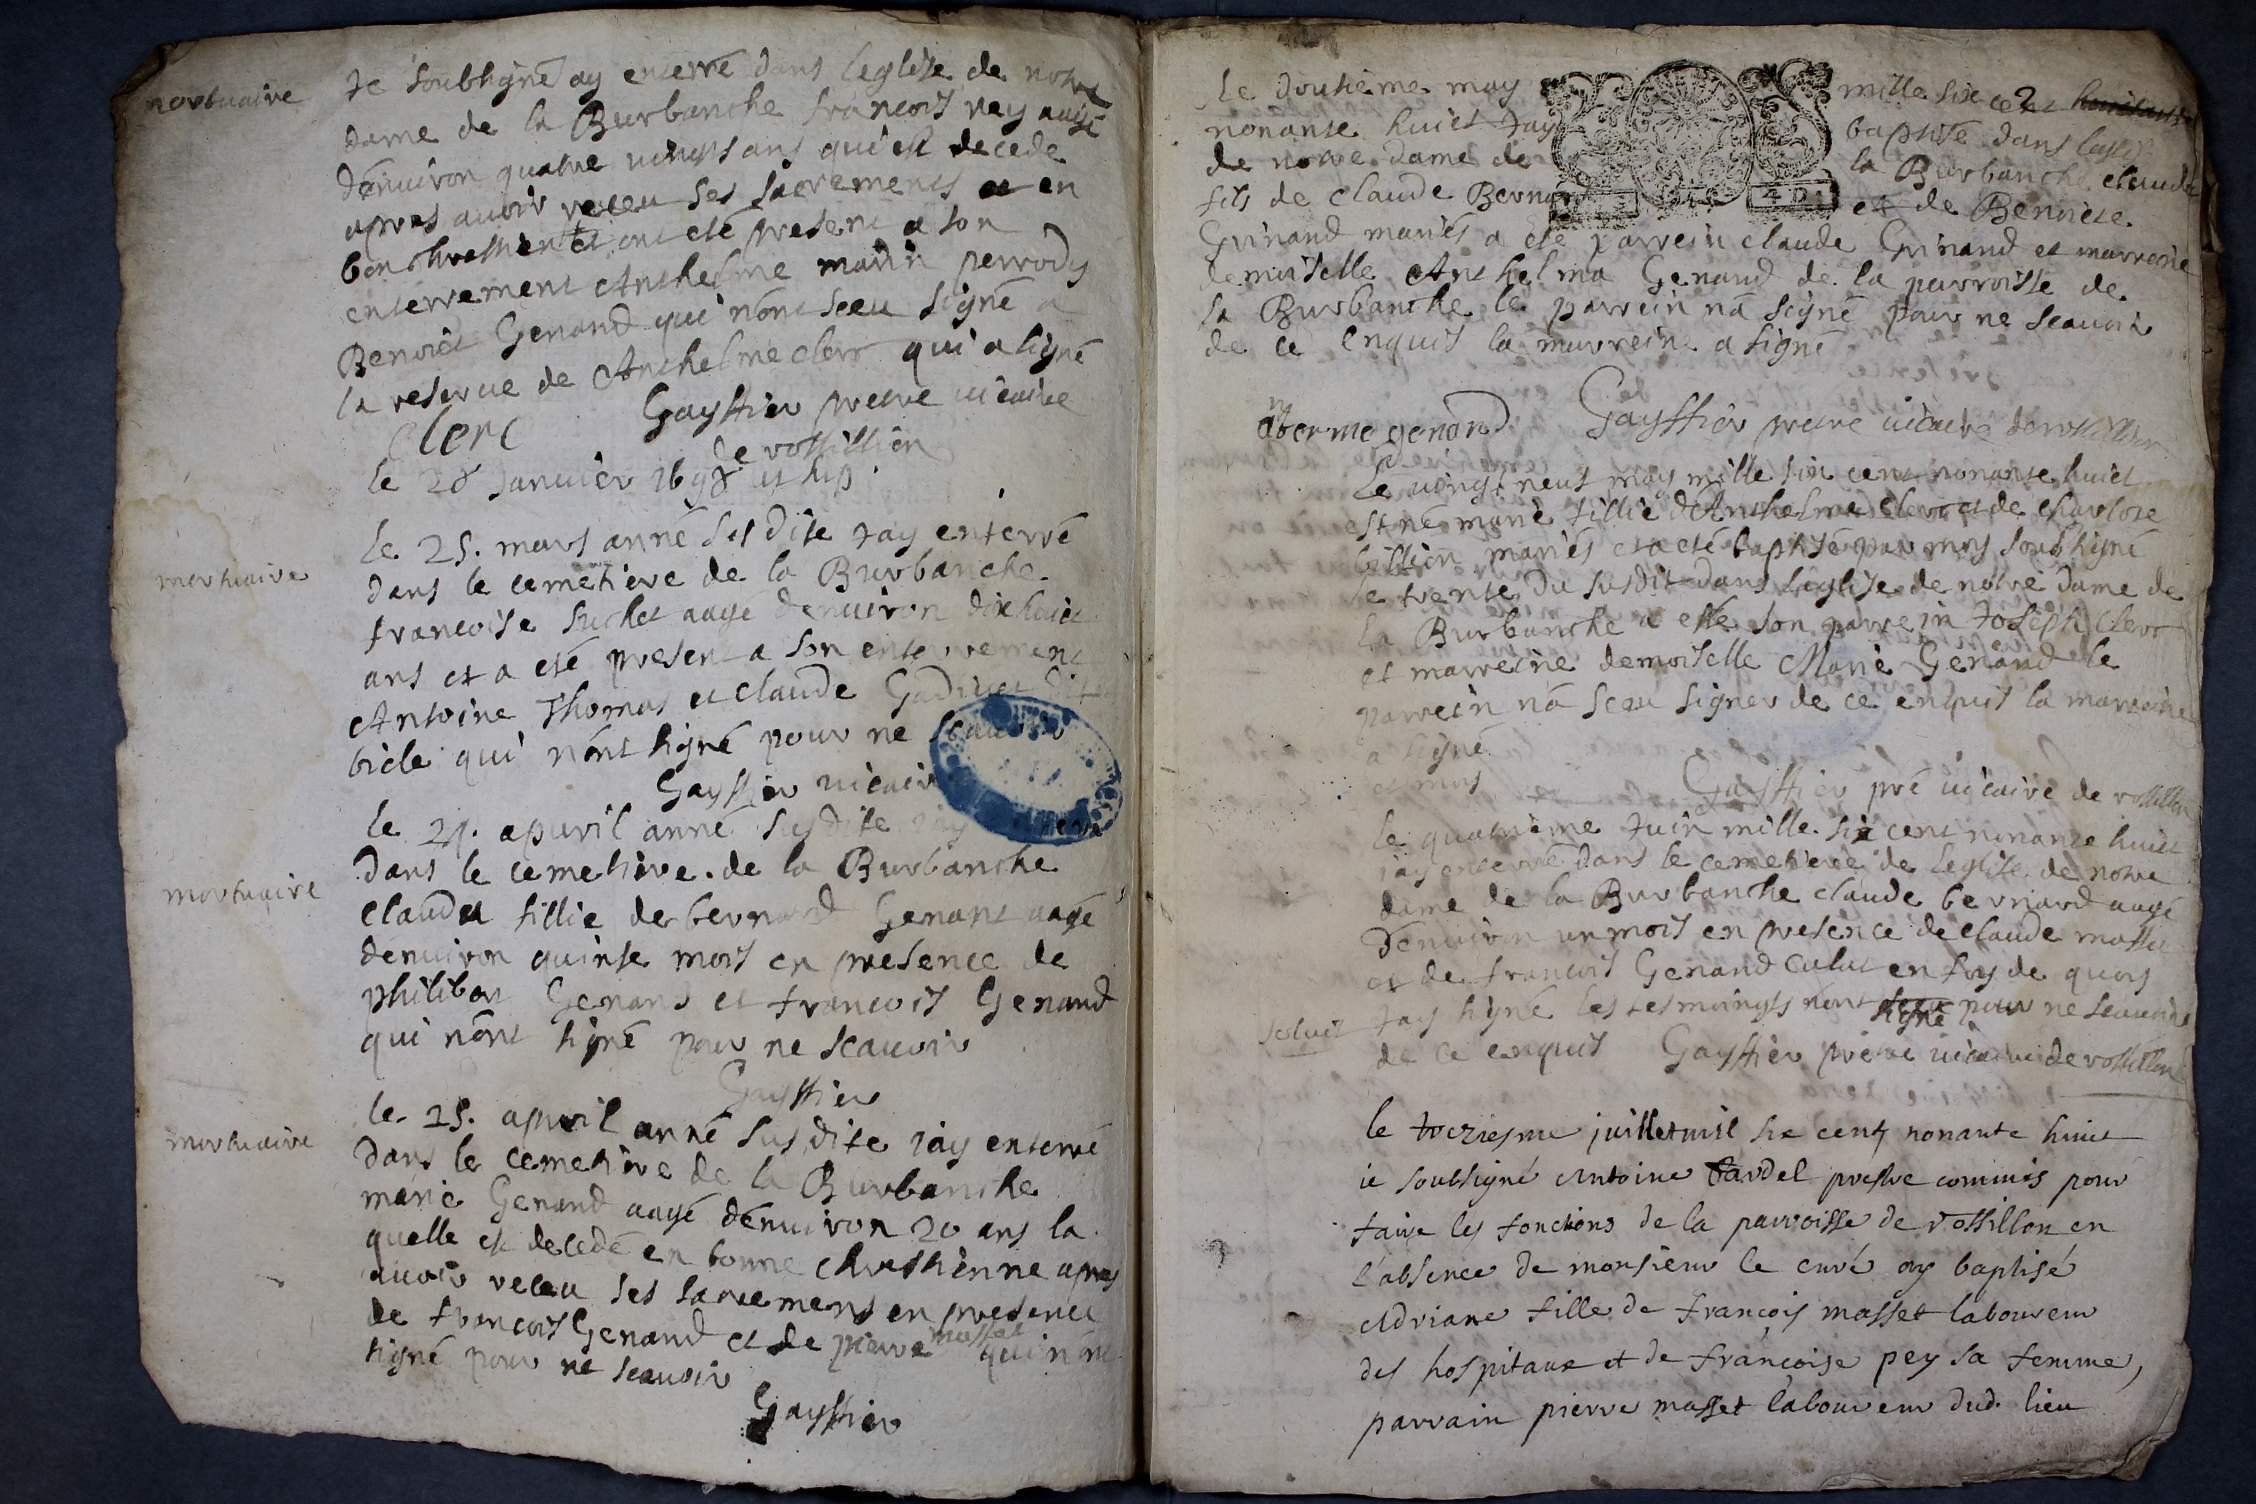 mortuaire
Je soubsigné ay enterré dans leglise de notre
dame de la Burbanche francois rey aagé
dénuiron quatre uingts ans qui est decede
apres auoir receu ses sacrements et en
bon chrestien et ont eté present a son
enterrement Anthelme marin perrody
Benoict Genand qui nónt sceu signé a
la reserue de Anthelme clerc qui a signé
Clerc Gaystier pretre uicaire
de rossillion
le 28 Januier 1698
mortuaire
le 25. mars anné susdite Jay enterré
dans le cemetiere de la Burbanche
francoise suchet aagé denuiron dixhuict
ans et a eté present a son enterrement
Antoine Thomas et claude
bicle qui nónt signé pour ne scauoir
Gaystier uicaire
mortuaire
le 21. apuril anné susdite jay
dans le cemetiere de la Burbanche
claude fillie de bernard Genant aagé
denuiron quinse mois en presence de
philibert Genand et francois Genand
qui nônt signé pour ne scauoir
Gaystier
mortuaire
le 25. apuril anné susdite jay enterré
dans le cemetiere de la Burbanche
marie Genand aagé dénuiron 20 ans la
quelle est decedé en bonne chrestienne apres
auoir receu ses sacremens en presence
de francois Genand et de pierre masset qui nónt
signé pour ne scauoir
Gaystier
2
Le dousieme may mille six cent
nonante huict Jay baptisé dans
de notre dame de la Burbanche claude
fils de claude Bernard et de Benoicte
Guinand mariés a eté parrein claude Guinand et marreine
demoiselle Anthelma Genand de la parroisse de
la Burbanche le parrein nâ signé pour ne scauoir
de ce enquis la marreine a signé
genand Gaystier pretre uicaire de rossillion
Le uingt neuf may mille six cent nonante huict
est né marie fillie dAnthelme clerc et de charlote
billion mariés et a eté baptisé par moy soubsigné
le trente du susdit dans leglise de notre dame de
la Burbanche a esté son parrein Joseph Clerc
et marreine demoiselle Marie Genand le
parrein nâ sceu signer de ce enquis la marreine
a signé
Gaystier pré uicaire de rossillion
le quatrieme Juin mille six cent nonante huict
jay enterré dans le cemetiere de leglise de notre
dame de la Burbanche claude bernard aagé
dénuiron un mois en presence de claude masset
et de francois Genand culat en foy de quoy
Jay signé les tesmoingts nont signé pour ne scauoir
de ce enquis Gaystier pretre uicaire de rossillion
soluit
le treziesme juillet mil six cent nonante huict
ie soubsigné Antoine Tardel prestre commis pour
faire les fonctions de la parroisse de rossillon en
l'absence de monsieur le curé ay baptisé
Adriane fille de françois masset laboureur
des hospitaux et de françoise pey sa femme,
parrain pierre masset laboureur dud. lieu